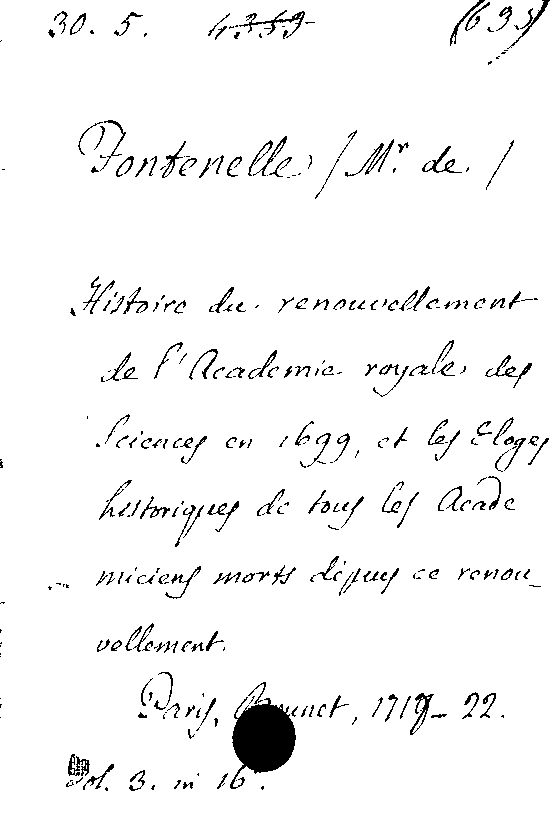 30. 5. 4353 (695)
Fontenelle /Mr. de./
Histoire du renouvellement
de l'Academie royale des
Sciences en 1699, et les Eloges
historiques de tous les Acade
miciens morts dépuis ce renou-
vellement.
Paris, Brunet, 1719-22.
Vol. 3. in 16°.